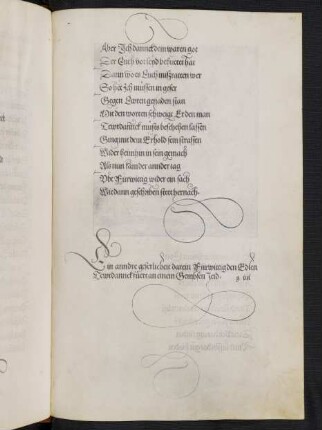 Aber Ich danck dem waren got
Der Euch vor leyd behuetet hat
Dann wo es Euch mißraten wer
So het Ich muessen in gefer
Gegen Eweren gnaden stan
Mit den worten schweigt Er den man
Tewrdannck muest beschehen lassen
Gieng mit dem Erhold sein strassen
Wider heimhin in sein gemach
Als nun kam der annder tag
Vbt Furwittig wider ein sach
Wie dann geschriben stett hernach
Ein anndre geferlicheit darein Furwittig den Edlen
Tewrdannck fuert an einem Gembsen Jeid.